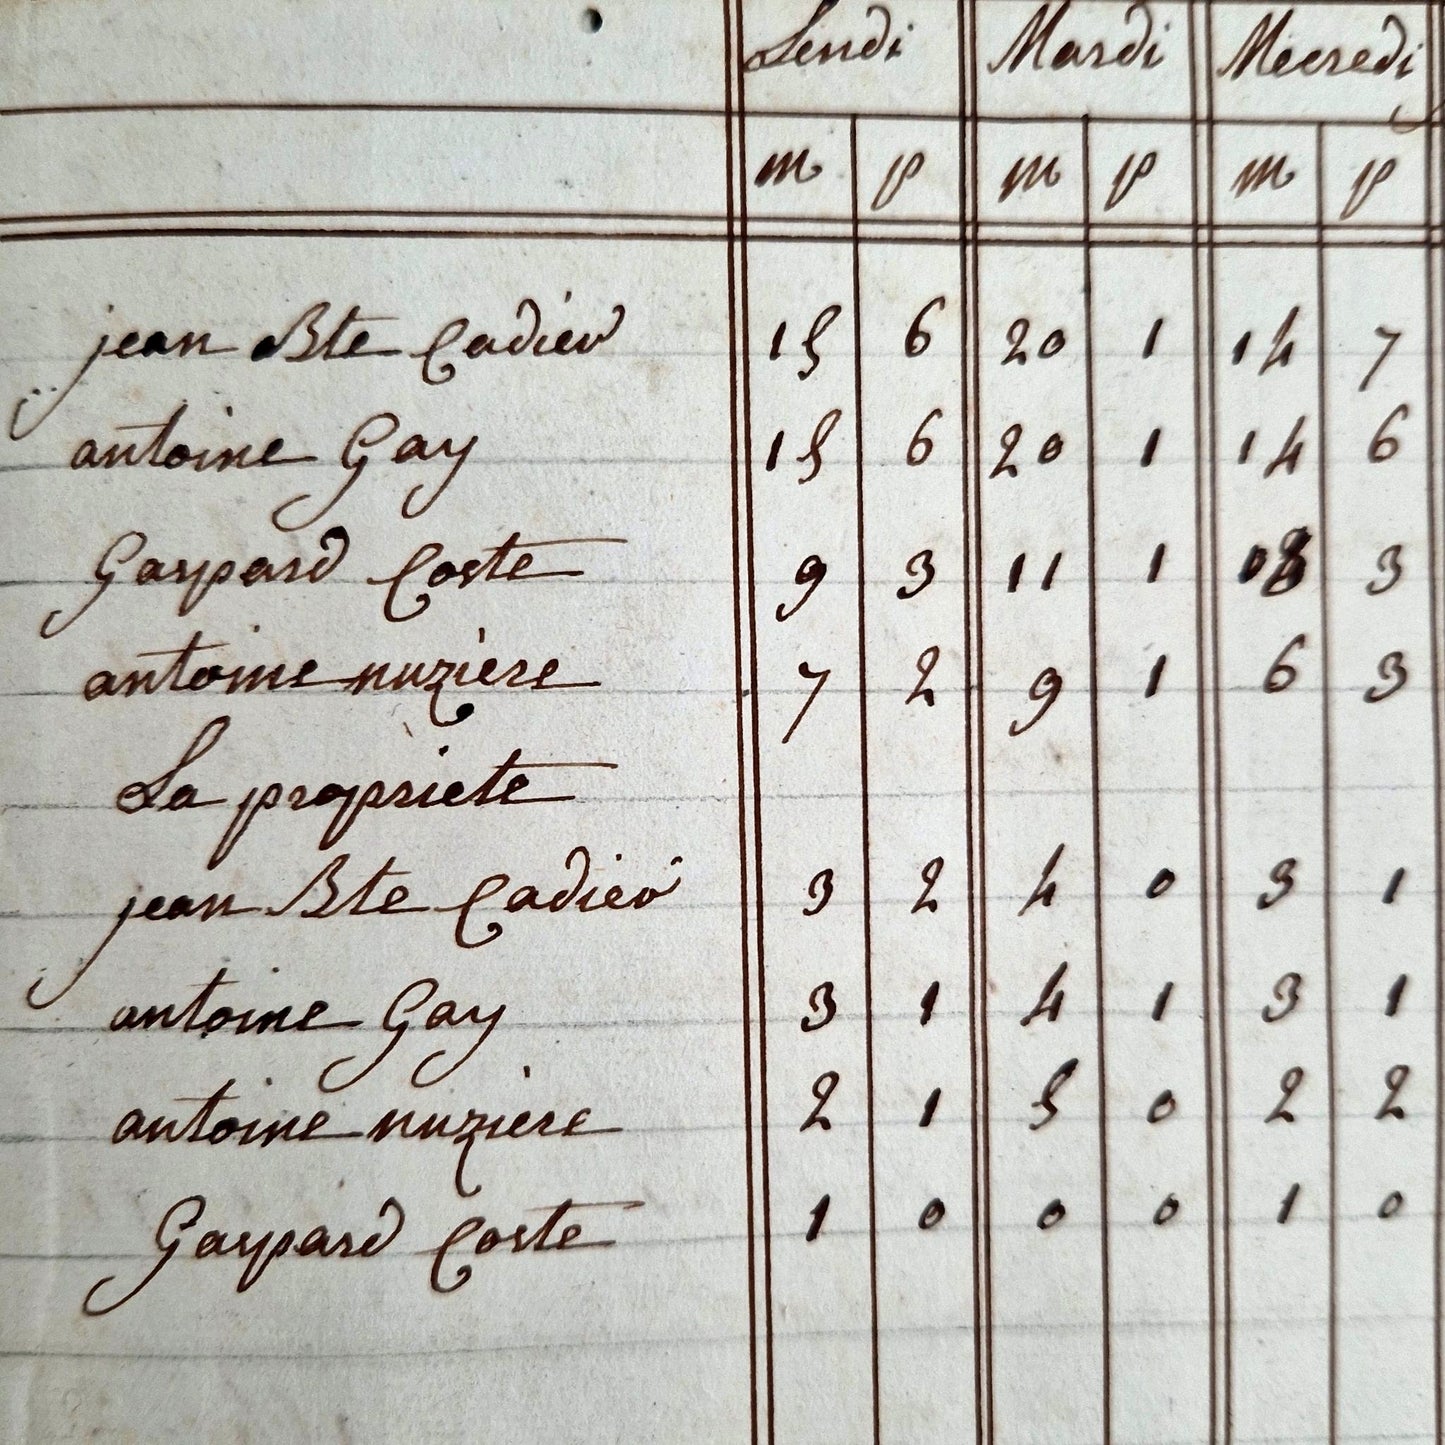 Lendi Mardi Mecredi
m p m p m p
jean Bte Cadieu 15 6 20 1 14 7
antoine Gay 15 6 20 1 14 6
Gaspard Coste 9 3 11 1 3
antoine nuziere 7 2 9 1 6 3
La propriete
jean Bte Cadieu 3 2 4 0 3 1
antoine Gay 3 1 4 1 3 1
antoine nuziere 2 1 5 0 2 2
Gaspard Coste 1 0 0 0 1 0